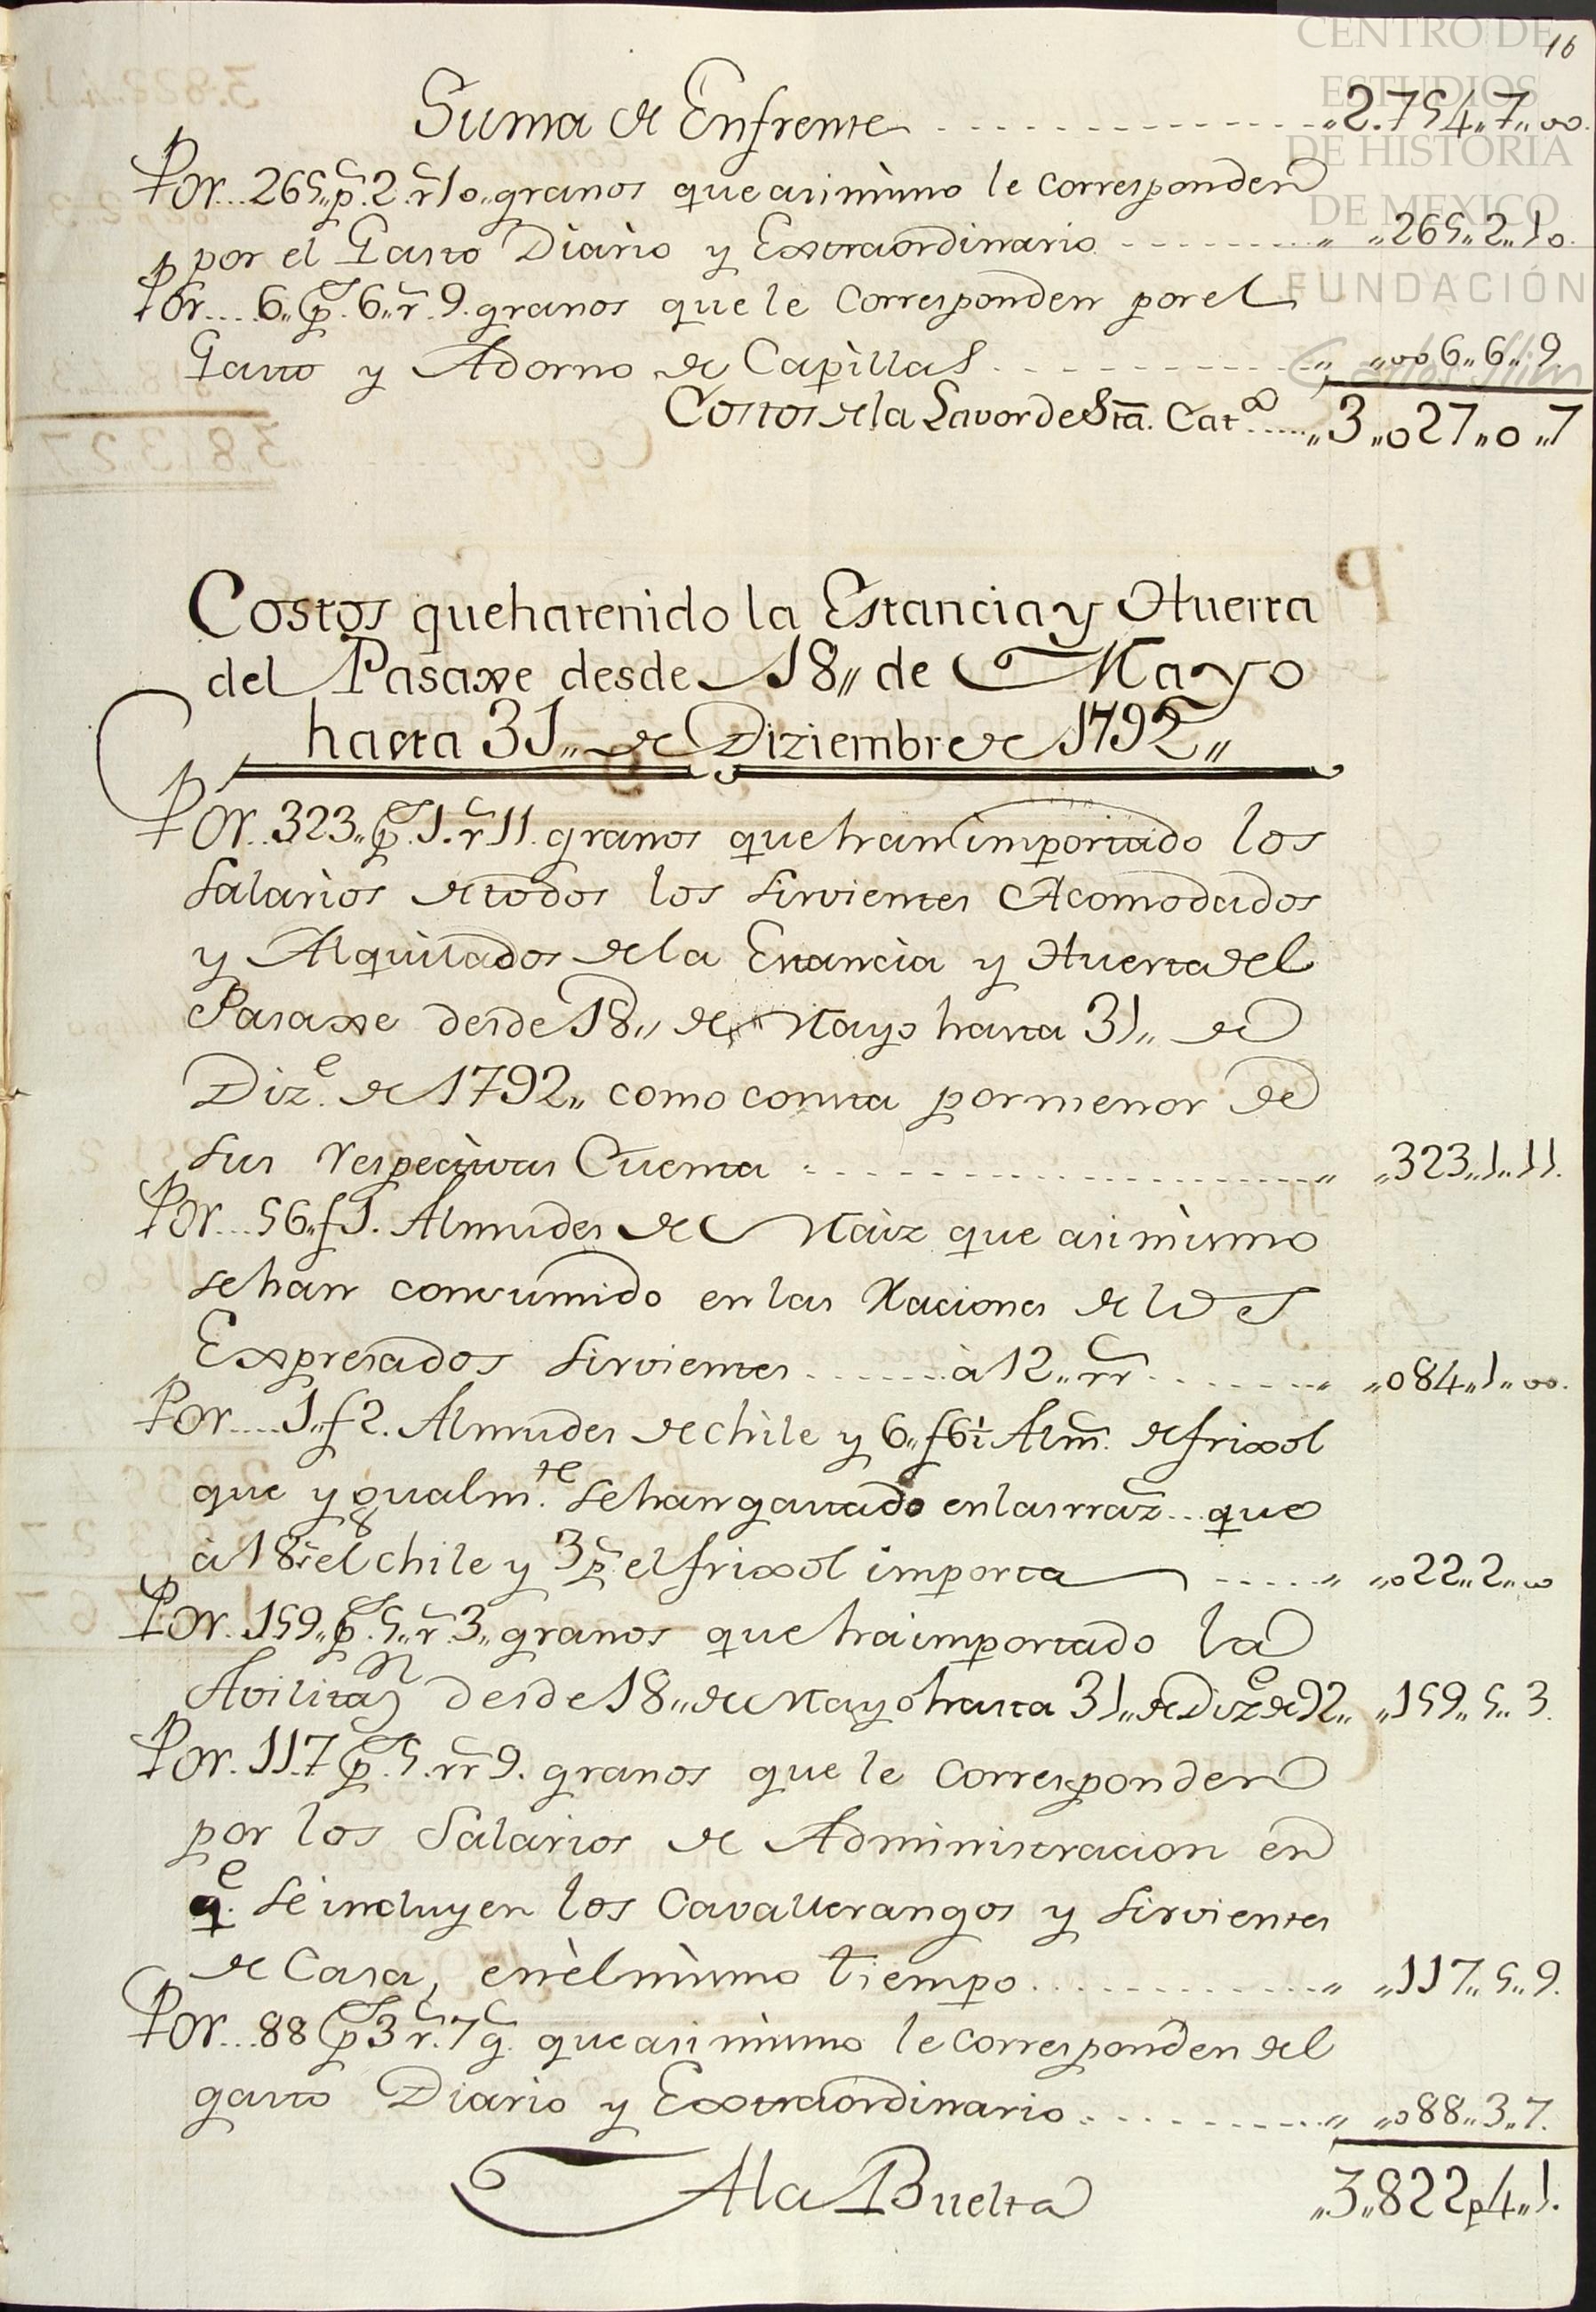 16
CENTRO DE
ESTUDIOS
DE HISTORIA
DE MEXICO
FUNDACIÓN
Carlos Slim
Suma de Enfrente ............ „2.754„7„oo.
Por...265„p.s2.r.s10„granos que asimismo le corresponden
por el Gasto Diario y Extraordinario ........„ „265„2„10.
Por....6„p.s6„r.s9.granos que le corresponden por el
Gasto y Adorno de Capillas ............„ „oo6„6„9.
Costos de la Lavor de Sta. Cat.a .....„3„o27„o„7
Costos que ha tenido la Estancia y Huerta
del Pasaxe desde 18„ de Mayo
hasta 31„ de Diziembre de 1792„
Por..323„p.s1.r.s11.granos que han importado los
Salarios de todos los sirvientes Acomodados
y Alquilados de la Estancia y Huerta del
Pasaxe desde 18„ de Mayo hasta 31„ de
Diz.e de 1792„ como consta por menor de
sus respectivas Cuentas ............„ „323„1„11.
Por...56„f1.Almudes de Maiz que asimismo
se han consumido en las Raciones de los
Expresados sirvientes .......à 12„rr.s ......„ „o84„1„oo.
Por....1„f2.Almudes de chile y 6„f6½ Alm.s de frixol
que ygualm.te se han gastado en las rraz.s..que
à 18r.s el chile y 3p.s el frixol importa .....„ „o22„2„oo
Por.159„p.s5„r.s3„granos que ha importado la
Avilitaz.n desde 18„de Mayo hasta 31„de Diz.e de 92„ „159„5„3.
Por.117p.s5.rr.s9.granos que le corresponden
por los Salarios de Administracion en
q.e se incluyen los Cavallerangos y sirvientes
de Casa, en èl mismo tiempo............„ „117„5„9.
Por...88p.s3r.s7g.s que asimismo le corresponden del
gasto Diario y Extraordinario..........„ „o88„3„7.
A la Buelta „3„822p4„1.